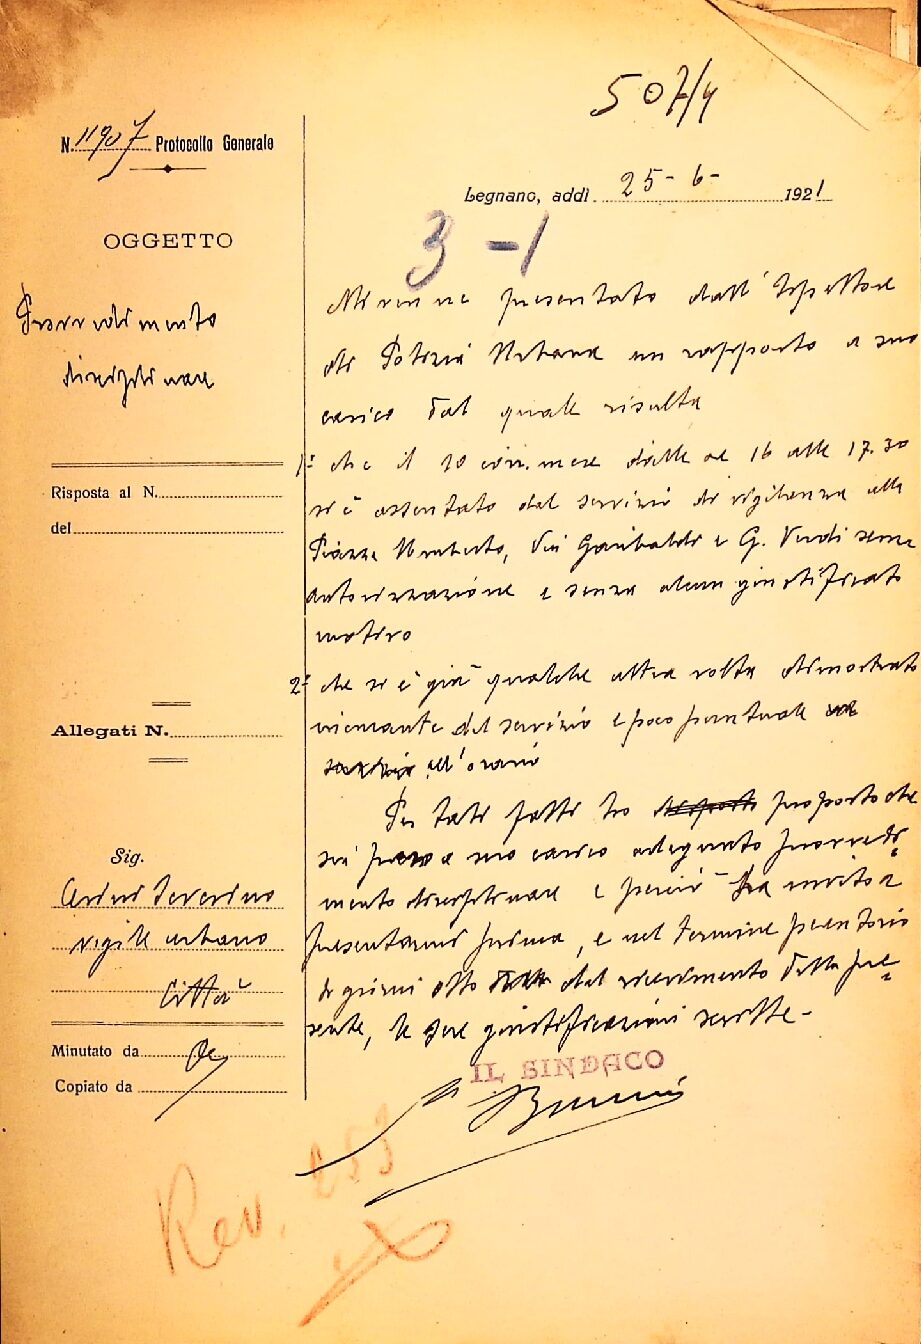 507/4
N. 11907 Protocollo Generale
Legnano, addì 25-6- 1921
3-1
OGGETTO
Provvedimento
disciplinare
Mi venne presentato dall'Ispettore
di Polizia Urbana un rapporto a suo
carico dal quale risulta
1° che il 20 corr. mese dalle ore 16 alle 17.30
si è assentato dal servizio di vigilanza alle
Piazza Umberto, Vie Garibaldi e G. Verdi senza
autorizzazione e senza alcun giustificato
motivo
2° che si è già qualche altra volta dimostrato
noncurante del servizio e poco puntuale
all'orario
Per tali fatti ho disposto proposto che
sia preso a suo carico adeguato provvedi=
mento disciplinare e perciò La invito a
presentarmi prima, e nel termine perentorio
di giorni otto dal ricevimento della pre=
sente, le sue giustificazioni scritte-
Risposta al N.
del
Allegati N.
Sig.
Severino
vigile urbano
Città
Minutato da
Copiato da
IL SINDACO
Rev. 253